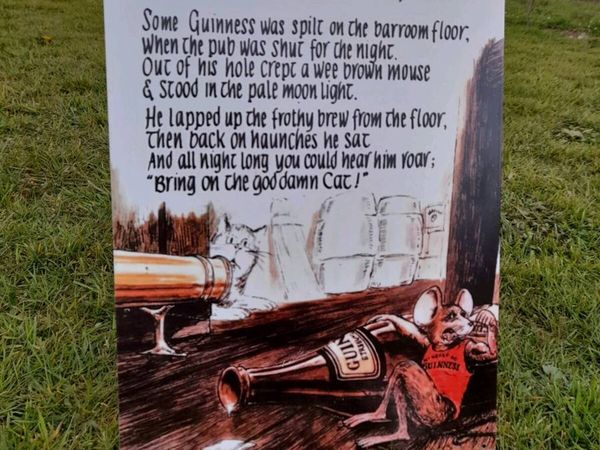 Some Guinness was spilt on the barroom floor,
when the pub was shut for the night.
Out of his hole crept a wee brown mouse
& stood in the pale moon light.
He lapped up the frothy brew from the floor,
Then back on haunches he sat
And all night long you could hear him roar;
"Bring on the goddamn Cat!"
GUINNESS